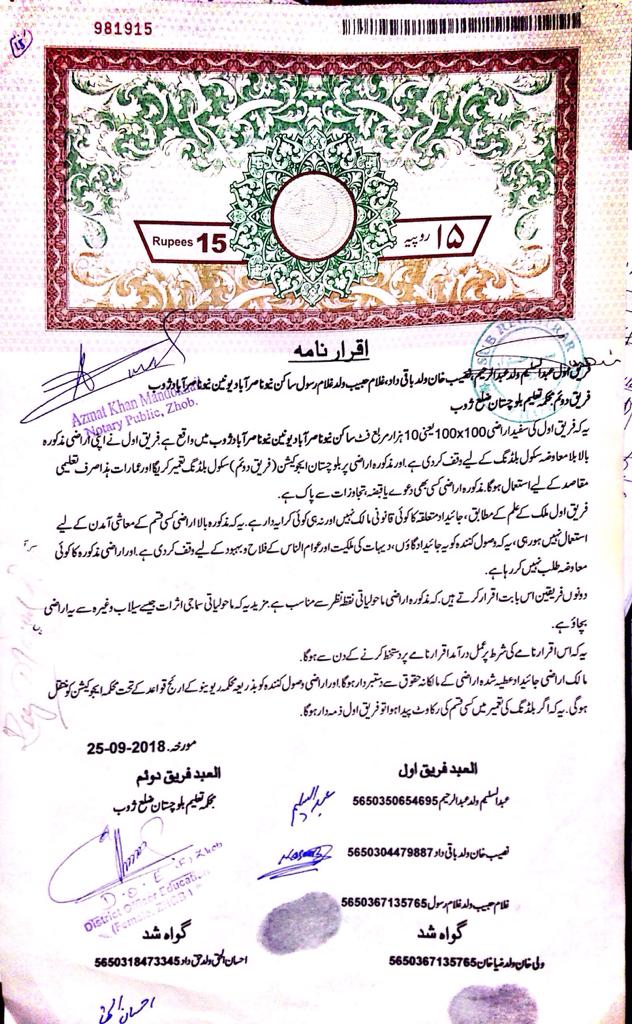 981915
15
Rupees 15
۱۵ روپیہ
اقرار نامہ
فریق اول عبدالسلیم ولد عبدالرحیم، نصیب خان ولد باقی داد، غلام حبیب ولد غلام رسول ساکن نیو ناصر آباد یونین نیو ناصر آباد ژوب
فریق دوئم محکمہ تعلیم بلوچستان ضلع ژوب
Azmat Khan
Notary Public, Zhob.
یہ کہ فریق اول کی سفید اراضی 100x100 یعنی 10 ہزار مربع فٹ ساکن نیو ناصر آباد یونین نیو ناصر آباد ژوب میں واقع ہے۔ فریق اول نے اپنی اراضی مذکورہ
بالا بلا معاوضہ سکول بلڈنگ کے لیے وقف کر دی ہے۔ اور مذکورہ اراضی پر بلوچستان ایجوکیشن (فریق دوئم) سکول بلڈنگ تعمیر کریگا اور عمارات ہذا صرف تعلیمی
مقاصد کے لیے استعمال ہوگا۔ مذکورہ اراضی کسی بھی دعوے یا قبضہ، تجاوزات سے پاک ہے۔
فریق اول ملک کے علم کے مطابق، جائیداد متعلقہ کا کوئی قانونی مالک نہیں اور نہ ہی کوئی کرایہ دار ہے۔ یہ کہ مذکورہ بالا اراضی کسی قسم کے معاشی آمدن کے لیے
استعمال نہیں ہو رہی، یہ کہ وصول کنندہ کو یہ جائیداد گاؤں، دیہات کی ملکیت اور عوام الناس کے فلاح و بہبود کے لیے وقف کردی ہے۔ اور اراضی مذکورہ کا کوئی
معاوضہ طلب نہیں کر رہا ہے۔
دونوں فریقین اس بابت اقرار کرتے ہیں، کہ مذکورہ اراضی ماحولیاتی نقطہ نظر سے مناسب ہے۔ مزید یہ کہ ماحولیاتی سماجی اثرات جیسے سیلاب وغیرہ سے یہ اراضی
بچاؤ ہے۔
یہ کہ اس اقرار نامے کی شرط پر عمل درآمد اقرار نامے پر دستخط کرنے کے دن سے ہوگا۔
مالک اراضی جائیداد عطیہ شدہ اراضی کے مالکانہ حقوق سے دستبردار ہوگا۔ اور اراضی وصول کنندہ کو بذریعہ محکمہ ریوینو کے رائج قواعد کے تحت محکمہ ایجوکیشن کو منتقل
ہوگی۔ یہ کہ اگر بلڈنگ کی تعمیر میں کسی قسم کی رکاوٹ پیدا ہوا تو فریق اول ذمہ دار ہوگا۔
مورخہ 25-09-2018
العبد فریق اول
عبدالسلیم ولد عبدالرحیم 5650350654695
عبدالسلیم
نصیب خان ولد باقی داد 5650304479887
غلام حبیب ولد غلام رسول 5650367135765
گواہ شد
ولی خان ولد ضیا خان 5650367135765
العبد فریق دوئم
محکمہ تعلیم بلوچستان ضلع ژوب
D.O.E (F) Zhob
District Officer Education
(Female) Zhob
گواہ شد
احسان الحق ولد حق داد 5650318473345
احسان الحق